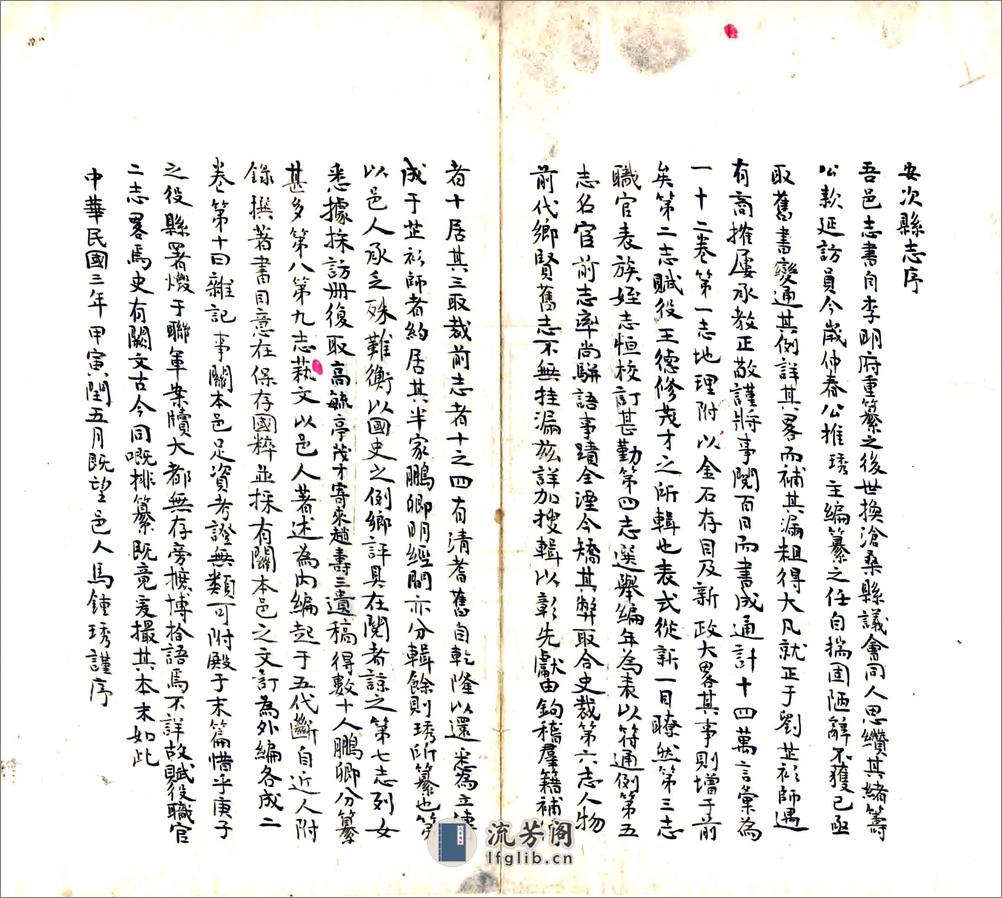 安次縣志序
吾邑志書自李明府重纂之後世換滄桑縣議會同人思纘其緒籌
公款延訪員今歲仲春公推琇主編纂之任自揣固陋辭不獲已亟
取舊書變通其例詳其畧而補其漏粗得大凡就正于劉芷衫師遇
有商搉屢承教正敬謹將事閱百日而書成通計十四萬言彙為
一十二卷第一志地理附以金石存目及新政大畧其事則增于前
矣第二志賦役王德修茂才之所輯也表式從新一目瞭然第三志
職官表族姪志恒校訂甚勤第四志選舉編年為表以符通例第五
志名宦前志率尚駢語事蹟全湮今矯其弊取合史裁第六志人物
前代鄉賢舊志不無挂漏茲詳加搜輯以彰先獻由鉤稽羣籍補
者十居其三取裁前志者十之四有清耆舊自乾隆以還悉為立傳
成于芷衫師者約居其半家鵬卿明經間亦分輯餘則琇所纂也第
以邑人承乏殊難衡以國史之例鄉評具在閱者諒之第七志列女
悉據採訪册復取高毓亭茂才寄來趙壽三遺稿得數十人鵬卿分纂
甚多第八第九志蓺文以邑人著述為內編起于五代斷自近人附
錄撰著書目意在保存國粹並採有關本邑之文訂為外編各成二
卷第十曰雜記事關本邑足資考證無類可附殿于末篇惜乎庚子
之役縣署燬于聯軍案牘大都無存旁摭博拾語焉不詳故賦役職官
二志畧焉史有闕文古今同嘅排纂既竟爰撮其本末如此
中華民國三年甲寅閏五月既望邑人馬鍾琇謹序
流芳阁
lfglib.cn